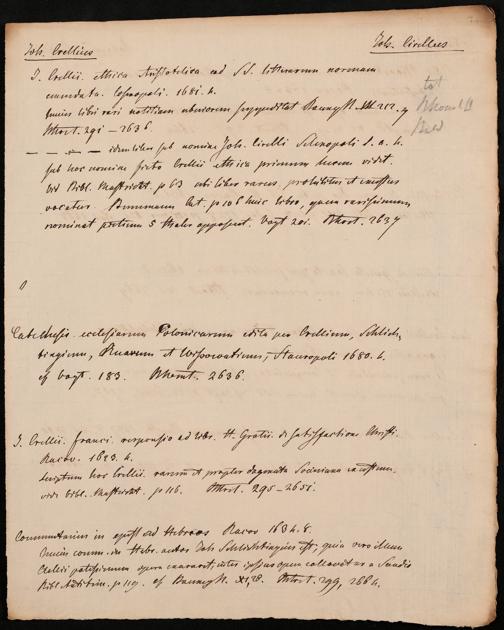 Joh. Crellius
Joh. Cirellus
J. Crellii ethica Aristotelica ad S.S. litterarum normam
emendata. Cosmopoli. 1681. 4.
huius libri rari notitiam uberiorem suppeditat Baumg. H. 212.
Rhost. 291 – 2636.
idem liber sub nomine Joh. Cirelli Selenopoli s. a. 4.
sub hoc nomine ficto Crellii ethica primum lucem vidit.
vid Bibl. Mastricht. p 63 ubi liber rarus, prohibitus et
vocatur. p 106 huic libro, quem rarissimum
nominat pretium 5 thaler apposuit. Vogt 201. Rhost. 2637
Catechesis ecclesiarum Polonicarum edita per Crellium, Schlich-
tingium, Ruarum et Wissowatium, Stauropoli 1680. 4.
cf Vogt. 183. 2636.
J. Crellii Franci responsio ad libr. H. Grotii de satisfactione Christi.
Racov. 1623. 4.
scriptum hoc Crellii rarum et propter dogmata Sociniana
vide Bibl. Mastricht. p 116. Rhost. 295 – 2651.
Commentarius in epist ad Hebraeos Racov 1634. 8.
comm. in Hebr. autor Joh Schlichtingius est, quia vero illum
Crellii potissimum opera
Bibl. Antitrin. p 119. cf Baumg H. Rhost. 299, 2664.